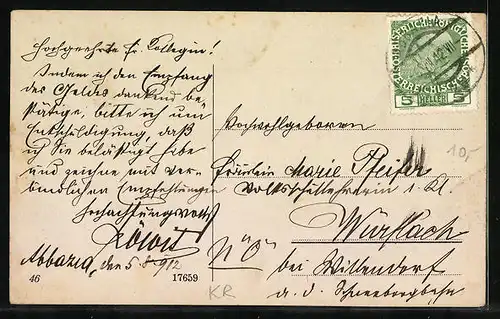 Hochgeehrte Fr. Collegin!
Indem ich den Empfang
des Geldes dankend be-
stätige, bitte ich um
Entschuldigung, daß
ich Sie belästigt habe
und zeichne mit ver-
bindlichen Empfehlungen
hochachtungsvoll
Löwit
Abbazia, den 5. 8. 912
46
17659
KAISERLICHE KÖNIGLICHE
ÖSTERREICHISCHE
5 HELLER 5
Hochwohlgeboren
Fräulein Marie Pfeifer
Volksschullehrerin i. Kl.
Würflach
N Ö
bei Willendorf
a. d. Schneebergbahn
10,-
KR